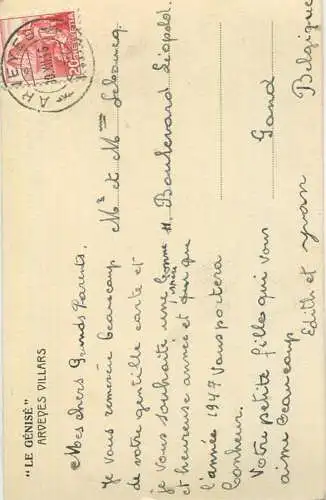 "LE GÉNISÉ"
ARVEYES VILLARS
Mes chers Grands Parents.
Je vous remercie beaucoup
de votre gentille carte et
je vous souhaite une bonne
et heureuse année et
j'espère que
l'année 1947 vous portera
bonheur.
Votre petite fille qui vous
aime beaucoup
Edith et Yvan
Mr et Mme
Boulevard Léopold.
Gand
Belgique
ARVEYES